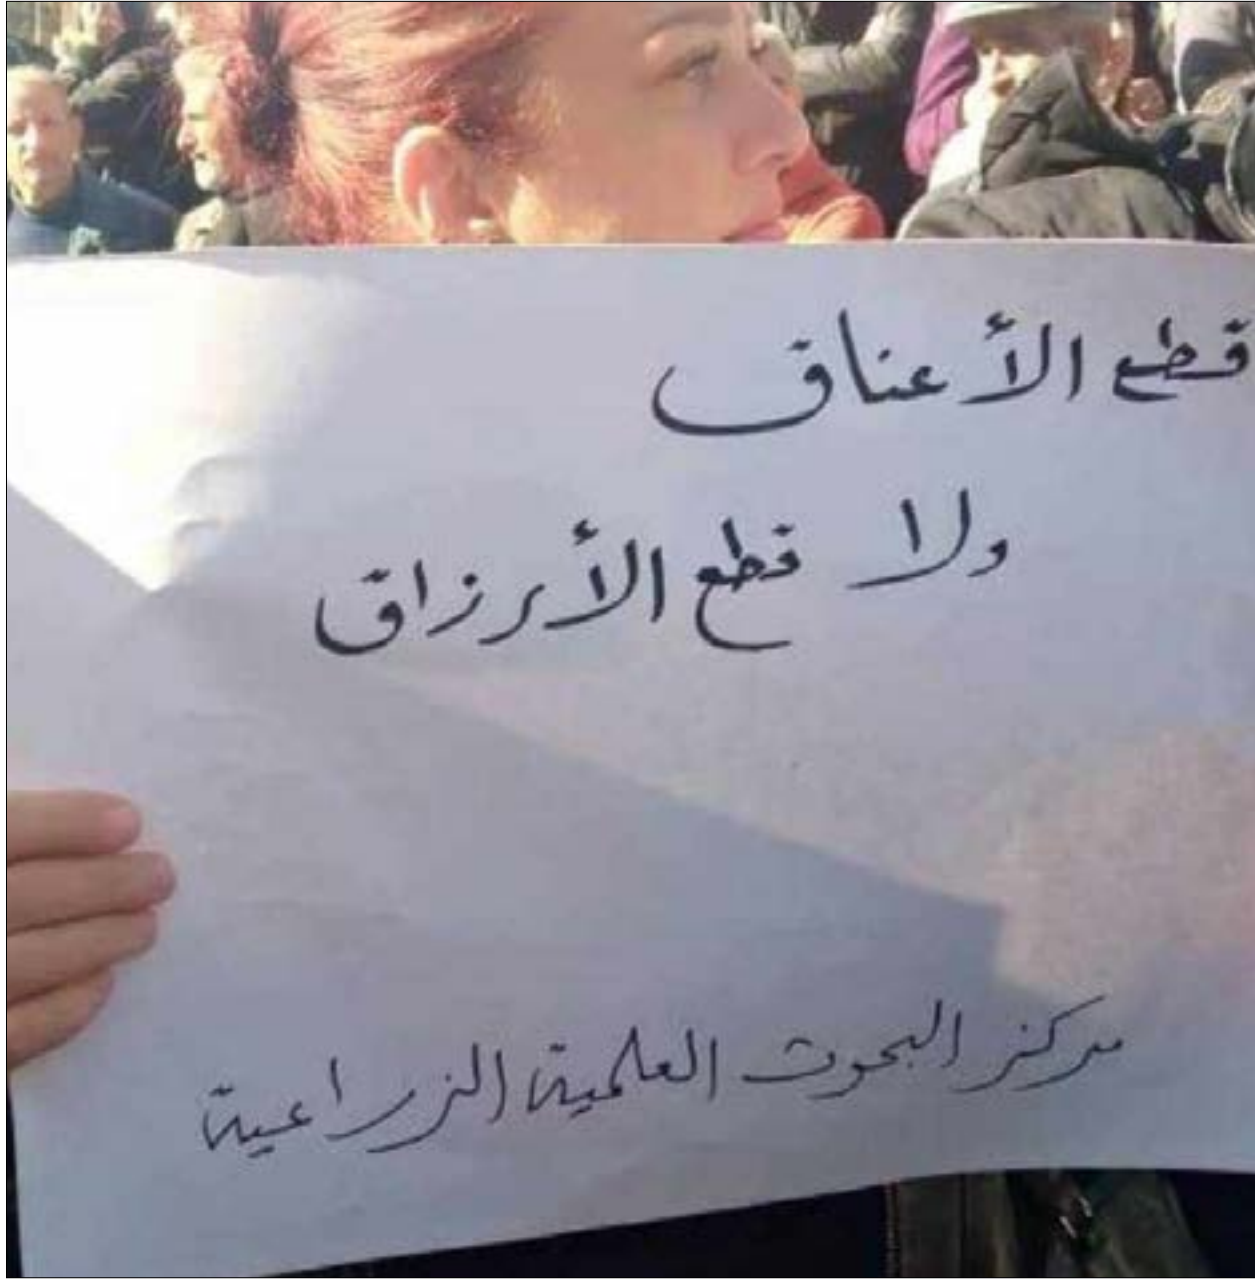 قطع الأعناق
ولا قطع الأرزاق
مركز البحوث العلمية الزراعية